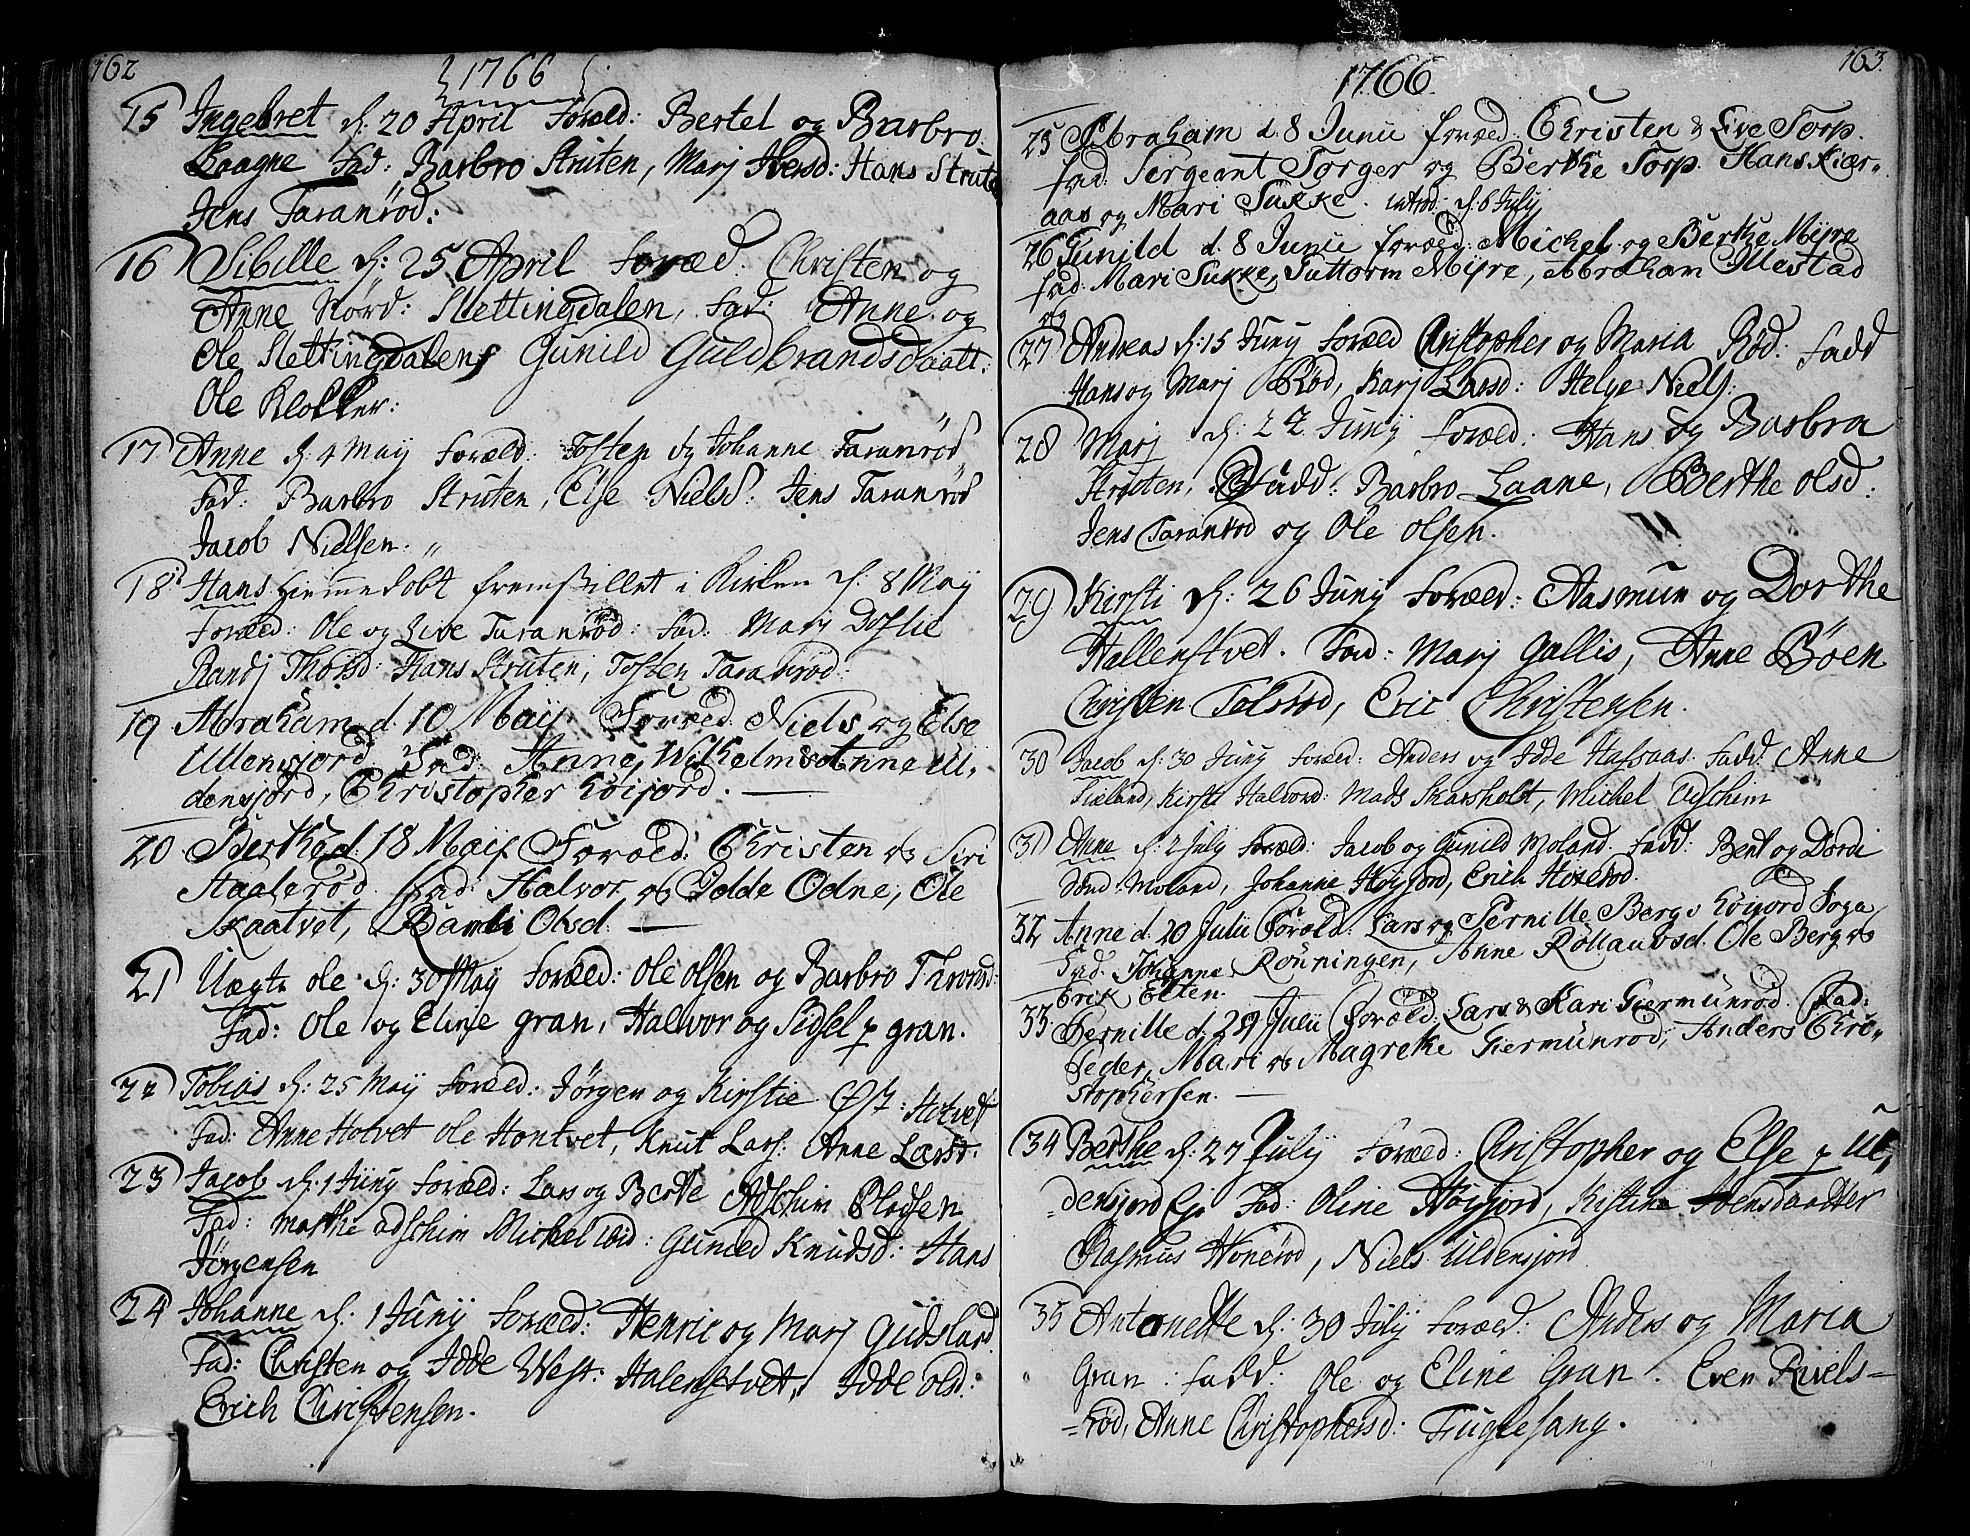 162
1766
15 Ingebret d: 20 April Foræld: Bertel og Barbro
Laagne Fad: Barbro Struten, Marj Iversd: Hans Strute
Jens Taranrød:
16 Sibille d: 25 April Foræd: Christen og
Anne Nørd: Slettingdalen, Fad: Anne og
Ole Slettingdalen, Gunild Guldbrandsdaatt:
Ole Klokker:
17 Anne d: 4 May Foræld: Tosten og Johanne Taranrød
Fad: Barbro Struten, Else Nielsd: Jens Taranrød
Jacob Nielsen. „
18 Hans hiemmedøbt fremstillet i Kirken d: 8 May
Foræld: Ole og Live Taranrød: Fad: Marj Doflie
Randj Thorsd: Hans Struten, Tosten Taranrød:
19 Abraham d. 10 Maij. Foræld. Niels og Else
Uldensjord Fad: Anne, Wilhelm & Anne Ul,
densjord, Christopher Høijord. —
20 Berthe d. 18 Maij Foræld: Christen og Siri
Staalerød. Fad: Halvor og Idde Odne, Ole
Skaatvet, Randi Olsd. —
21 Uægte ole d: 30 May Foræld: Ole Olsen og Barbro Thorord:
Fad: Ole og Eline gran, Halvor og Sidsel p gran.
22 Tobias d: 25 May Foræld: Jørgen og Kirstie Øst: Hotvedt
Fad: Anne Hotvet ole Hontvet, Knut Lars: Anne Larsd.
23 Jacob d: 1 Juny Foræld: Lars og Berte Adschim Olachsen
Fad: Marthe adschim Michel ibid: Gunild Knudsd: Hans
Jørgensen
24 Johanne d: 1 Juny Foræld: Henric og Marj Gudslard
Fad: Christen og Idde West: Halenstvet, Idde Olsd:
Erich Christensen.
163.
1766.
25 Abraham d. 8 Junii foræld: Christen & Live Torp.
fad. Sergeant Torger og Berthe Torp. Hans Kiær,
aas og Mari Sukke. introd: d. 6 July
26 Gunild d. 8 Junii foræld: Michel og Berthe Myre
fad. Mari Sukke, Guttorm Myre, Abraham Illestad
og
27 Andreas d: 15 Juny Foræld Christopher og Maria Rød: Fadd
Hans og Marj Rød, Karj Larsd: Helge Niels:
28 Marj d: 24 Juny Foræld: Hans og Barbra
Struten, Fadd: Barbro Laane, Berthe Olsd:
Jens Taranrød og Ole Olsen.
29 Kirsti d: 26 Juny Foræld: Aasmun og Dorthe
Hallenstvet. Fad: Marj Gallis, Anne Bøen
Christen Tolsrød, Eric Christensen.
30 Jacob d: 30 Juny Foræld: Anders og Idde Hafsaas. Fadd: Anne
Fieland, Kirsti Halvord: Mads Skarsholt, Michel Adschim
31 Anne d: 2 July Foræld: Jacob og Gunild Moland. Fadd: Bent og Dordi
Sønd: Moland, Johanne Høyjord, Erich Hønerød.
32 Anne d. 20 Julii Foræld: Lars og Pernille Berg i Høijord Sogn
Fad. Johanne Rønningen, Anne Rollaubsd. Ole Berg og
Erik Elten.
33 Pernille d. 29 Julii Foræld. Lars & Kari Giermunrød. Fad:
Peder, Mari og Magrethe Giermunrød, Anders Chri-
stophersen. —
34 Berthe d: 27 July Foræld: Christopher og Else p Ul,
densjord Eje Fad: Oline Høyjord, Kistine Svensdaatter
Rasmus Hønerød, Niels Uldensjord
35 Antonette d: 30 July Foræld: Anders og Maria
Gran: Fadd: Ole og Eline Gran. Even Riiels-
-rød, Anne Christophersd: Fuglesang.